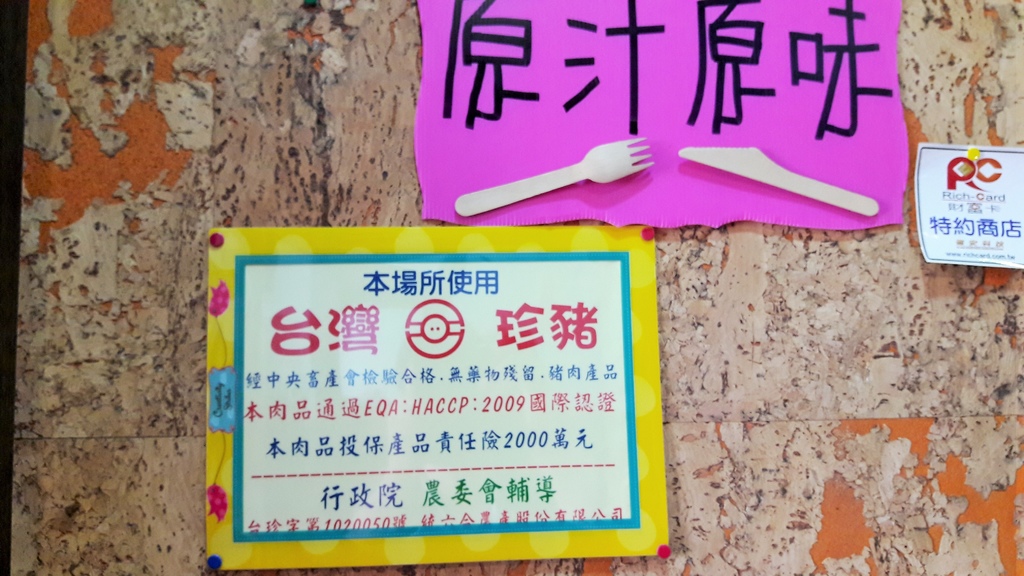 原汁原味
本場所使用
台灣 珍豬
經中央畜產會檢驗合格.無藥物殘留.豬肉產品
本肉品通過EQA:HACCP:2009國際認證
本肉品投保產品責任險2000萬元
行政院 農委會輔導
台珍字第1020050號 統六合農產股份有限公司
RC
Rich-Card
財富卡
特約商店
www.richcard.com.tw